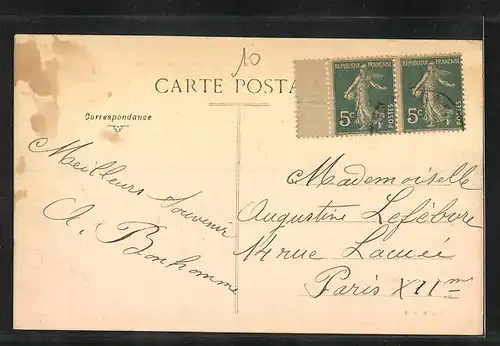 10
CARTE POSTA
Correspondance
Meilleurs Souvenir
A. Bonhomme
REPUBLIQUE FRANÇAISE
5c
POSTES
REPUBLIQUE FRANÇAISE
5c
POSTES
Mademoiselle
Augustine Lefébure
14 rue Lacuée
Paris XIIme